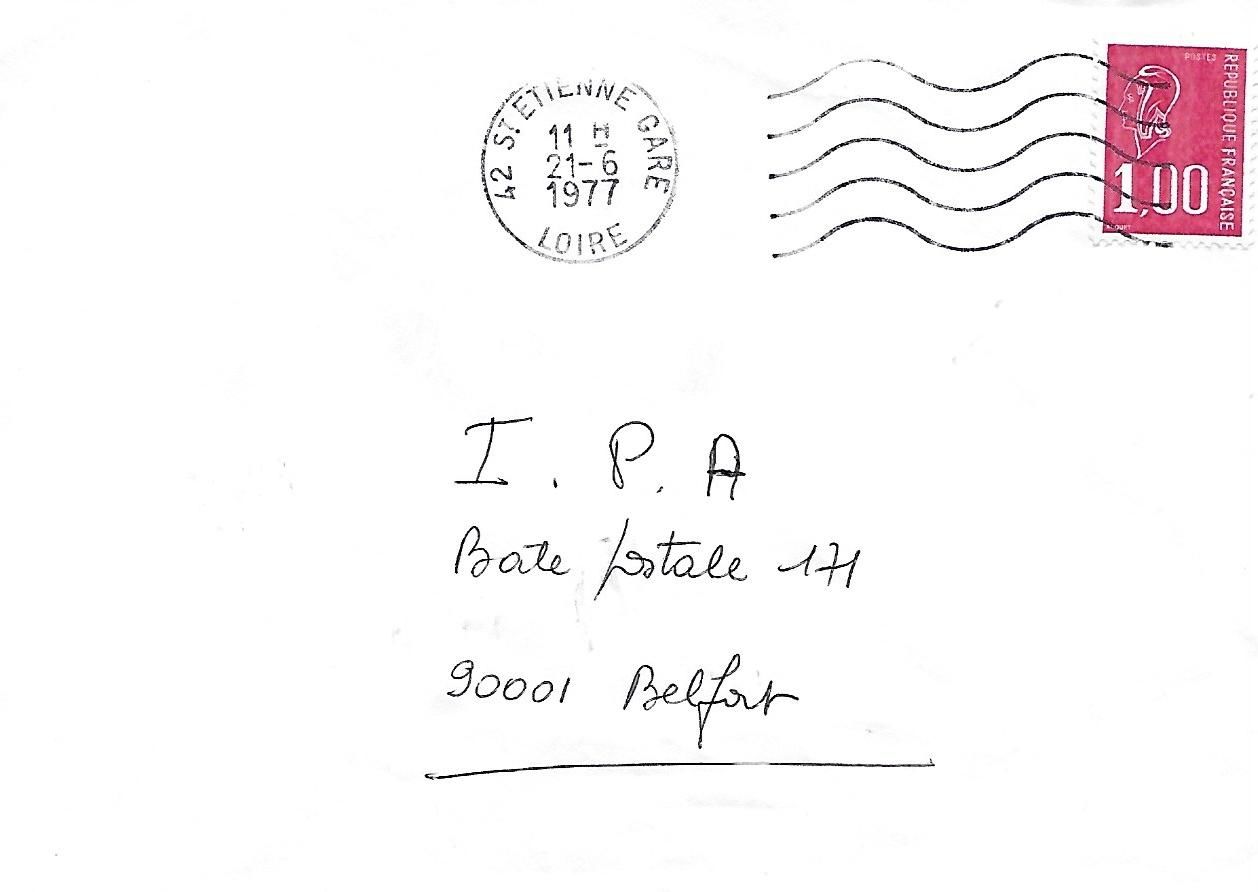 42 ST ETIENNE GARE
11 H
21-6
1977
LOIRE
POSTES
REPUBLIQUE FRANÇAISE
1,00
I. P. A
Boîte postale 171
90001 Belfort